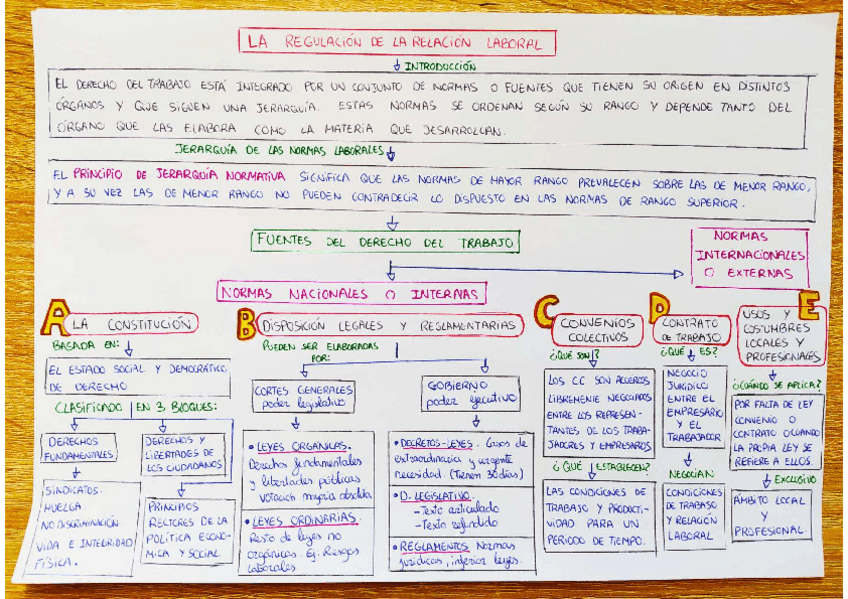 LA REGULACIÓN DE LA RELACIÓN LABORAL
INTRODUCCIÓN
EL DERECHO DEL TRABAJO ESTÁ INTEGRADO POR UN CONJUNTO DE NORMAS O FUENTES QUE TIENEN SU ORIGEN EN DISTINTOS
ÓRGANOS Y QUE SIGUEN UNA JERARQUÍA. ESTAS NORMAS SE ORDENAN SEGÚN SU RANGO Y DEPENDE TANTO DEL
ÓRGANO QUE LAS ELABORA COMO LA MATERIA QUE DESARROLLAN.
JERARQUÍA DE LAS NORMAS LABORALES
EL PRINCIPIO DE JERARQUÍA NORMATIVA SIGNIFICA QUE LAS NORMAS DE MAYOR RANGO PREVALECEN SOBRE LAS DE MENOR RANGO,
Y A SU VEZ LAS DE MENOR RANGO NO PUEDEN CONTRADECIR LO DISPUESTO EN LAS NORMAS DE RANGO SUPERIOR.
FUENTES DEL DERECHO DEL TRABAJO
NORMAS
INTERNACIONALES
O EXTERNAS
NORMAS NACIONALES O INTERNAS
A
LA CONSTITUCIÓN
BASADA EN:
EL ESTADO SOCIAL Y DEMOCRÁTICO
DE DERECHO
CLASIFICADO EN 3 BLOQUES:
DERECHOS
FUNDAMENTALES
SINDICATOS.
HUELGA.
NO DISCRIMINACIÓN
VIDA E INTEGRIDAD
FÍSICA.
DERECHOS Y
LIBERTADES DE
LOS CIUDADANOS
PRINCIPIOS
RECTORES DE LA
POLÍTICA ECONO-
MICA Y SOCIAL
B
DISPOSICIÓN LEGALES Y REGLAMENTARIAS
PUEDEN SER ELABORADAS
POR:
CORTES GENERALES
poder legislativo
• LEYES ORGÁNICAS.
Derechos fundamentales
y libertades públicas
votación mayría absoluta
• LEYES ORDINARIAS.
Resto de leyes no
orgánicas. Ej: Riesgos
Laborales
GOBIERNO
poder ejecutivo
• DECRETOS-LEYES. Casos de
extraordinaria y urgente
necesidad. (Tienen 30 días)
• D. LEGISLATIVO.
- Texto articulado
- Texto refundido
• REGLAMENTOS Normas
jurídicas, inferior leyes.
C
CONVENIOS
COLECTIVOS
¿QUÉ SON?
LOS CC SON ACUERDOS
LIBREMENTE NEGOCIADOS
ENTRE LOS REPRESEN-
TANTES DE LOS TRABA-
JADORES Y EMPRESARIOS
¿QUÉ ESTABLECEN?
LAS CONDICIONES DE
TRABAJO Y PRODUCTI-
VIDAD PARA UN
PERIODO DE TIEMPO.
D
CONTRATO
DE TRABAJO
¿QUÉ ES?
NEGOCIO
JURIDICO
ENTRE EL
EMPRESARIO
Y EL
TRABAJADOR
NEGOCIAN:
CONDICIONES
DE TRABAJO
Y RELACIÓN
LABORAL
E
USOS Y
COSTUMBRES
LOCALES Y
PROFESIONALES
¿CUÁNDO SE APLICA?
POR FALTA DE LEY
CONVENIO O
CONTRATO O CUANDO
LA PROPIA LEY SE
REFIERE A ELLOS.
EXCLUSIVO
ÁMBITO LOCAL
Y
PROFESIONAL.